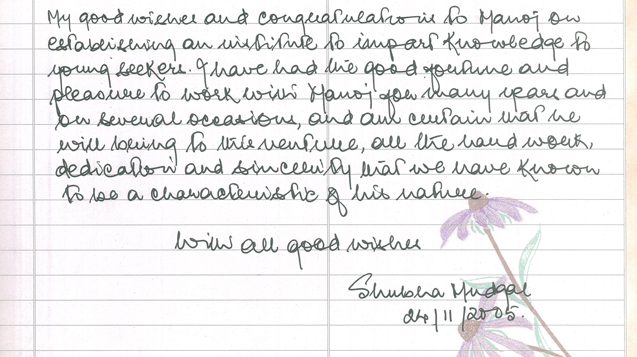 My good wishes and congratulations to Manoj on
establishing an institute to impart knowledge to
young seekers. I have had the good fortune and
pleasure to work with Manoj for many years and
on several occasions, and am certain that he
will bring to this venture, all the hard work,
dedication and sincerity that we have known
to be a characteristic of his nature.
With all good wishes
Shubha Mudgal
24/11/2005.